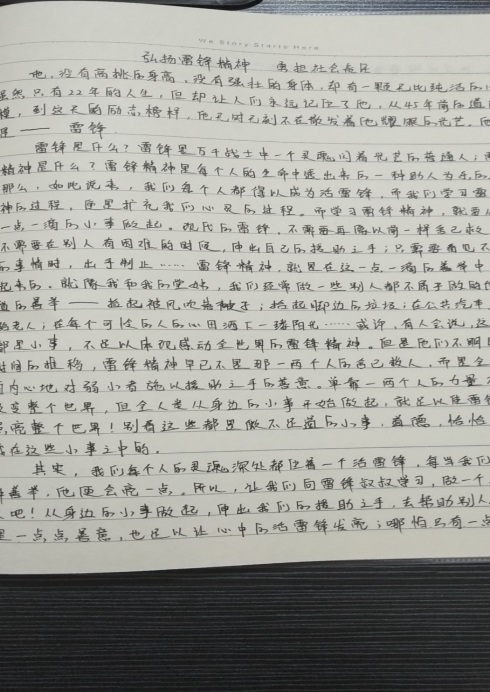 We Story Starts Here
弘扬雷锋精神 勇担社会责任
他，没有高挑的身高，没有强壮的身体，却有一颗无比纯洁的
虽然只有22年的人生，但却让人们永远记住了他，从45年前的道
模，到这天的励志榜样，他无时无刻不在散发着他耀眼的光芒。他
是——雷锋
雷锋是什么？雷锋是万千战士中一个灵魂闪着光芒的普通人；
精神是什么？雷锋精神是每个人的生命中透出来的一种助人为乐的
那么，如此说来，我们每个人都得以成为活雷锋，而我们学习雷
神的过程，便是扩充我们心灵的过程。而学习雷锋精神，就要
一点一滴的小事做起。现代的雷锋，不需要再像以前一样舍己救
不需要在别人有困难的时候，伸出自己的援助之手；只需要看见不
的事情时，出手制止……雷锋精神，就是在这一点一滴的善举中
起来的。就像我和我的堂姑，我们经常做一些别人都不屑于做的
道的善举——扶起被风吹落的椅子；拾起脚边的垃圾；在公共汽车
的老人；在每个可怜的人的心田洒下一缕阳光……或许，有人会说，这
都是小事，不足以体现感动全世界的雷锋精神。但是他们不明
时间的推移，雷锋精神早已不是那一两个人的舍己救人，而是全
内心地对弱小者施以援助之手的善意。单靠一两个人的力量
改变整个世界，但全人类从身边的小事开始做起，就足以使雷锋
照亮整个世界！别看这些都是微不足道的小事，道德，恰恰
在这些小事之中的。
其实，我们每个人的灵魂深处都住着一个活雷锋，每当我们
善举，他便会亮一点。所以，让我们向雷锋叔叔学习，做一个
人吧！从身边的小事做起，伸出我们的援助之手，去帮助别人，
是一点点善意，也足以让心中的活雷锋发亮；哪怕只有一点